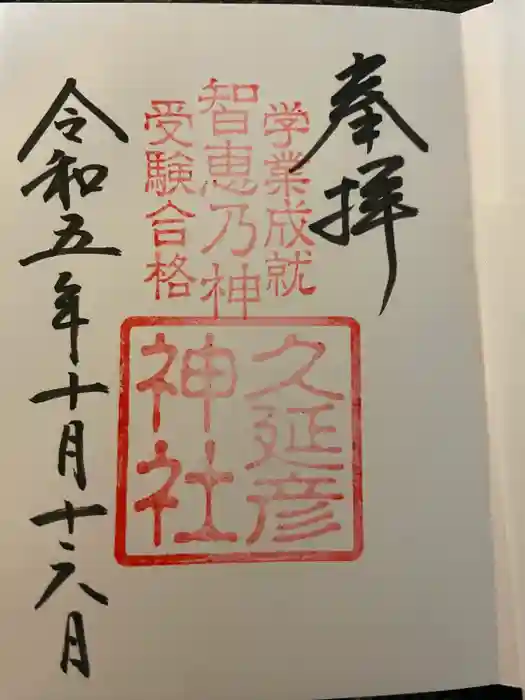 奉拝
学業成就
智恵乃神
受験合格
久延彦
神社
令和五年十月十六月